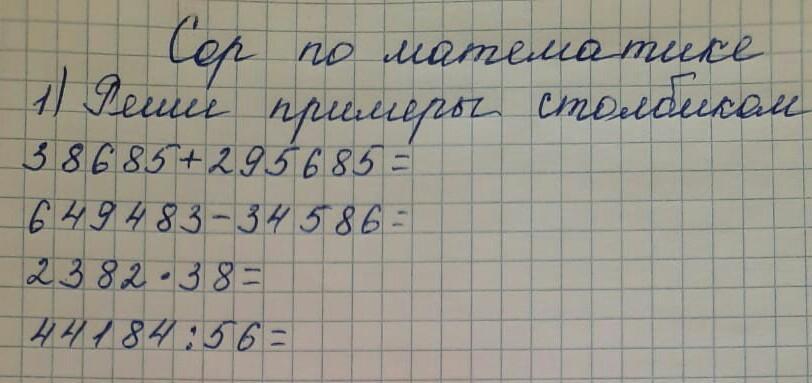 Сор по математике
1) Реши примеры столбиком
38685+295685=
649483-34586=
2382·38=
44184:56=